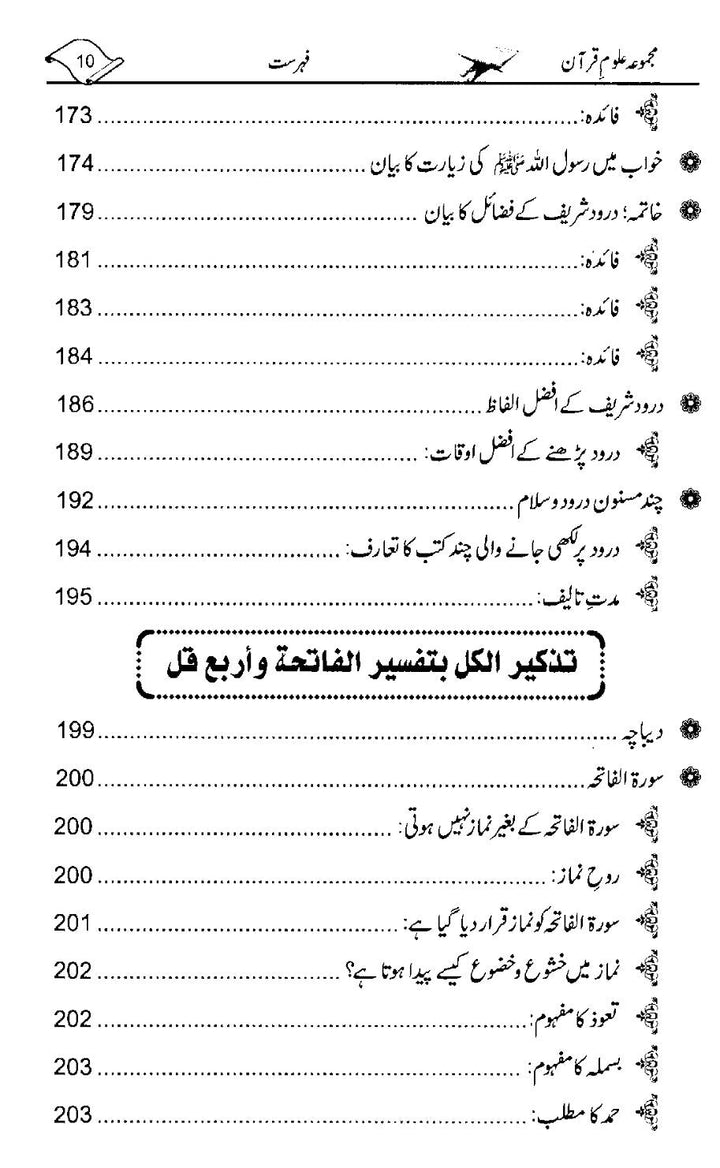 مجموعہ علومِ قرآن فہرست 10
فائدہ: 173
خواب میں رسول اللہ ﷺ کی زیارت کا بیان 174
خاتمہ؛ درود شریف کے فضائل کا بیان 179
فائدہ: 181
فائدہ: 183
فائدہ: 184
درود شریف کے افضل الفاظ 186
درود پڑھنے کے افضل اوقات: 189
چند مسنون درود و سلام 192
درود پر لکھی جانے والی چند کتب کا تعارف: 194
مدتِ تالیف: 195
تذكير الكل بتفسير الفاتحة وأربع قل
دیباچہ 199
سورۃ الفاتحہ 200
سورۃ الفاتحہ کے بغیر نماز نہیں ہوتی: 200
روحِ نماز: 200
سورۃ الفاتحہ کو نماز قرار دیا گیا ہے: 201
نماز میں خشوع و خضوع کیسے پیدا ہوتا ہے؟ 202
تعوذ کا مفہوم: 202
بسملہ کا مفہوم: 203
حمد کا مطلب: 203